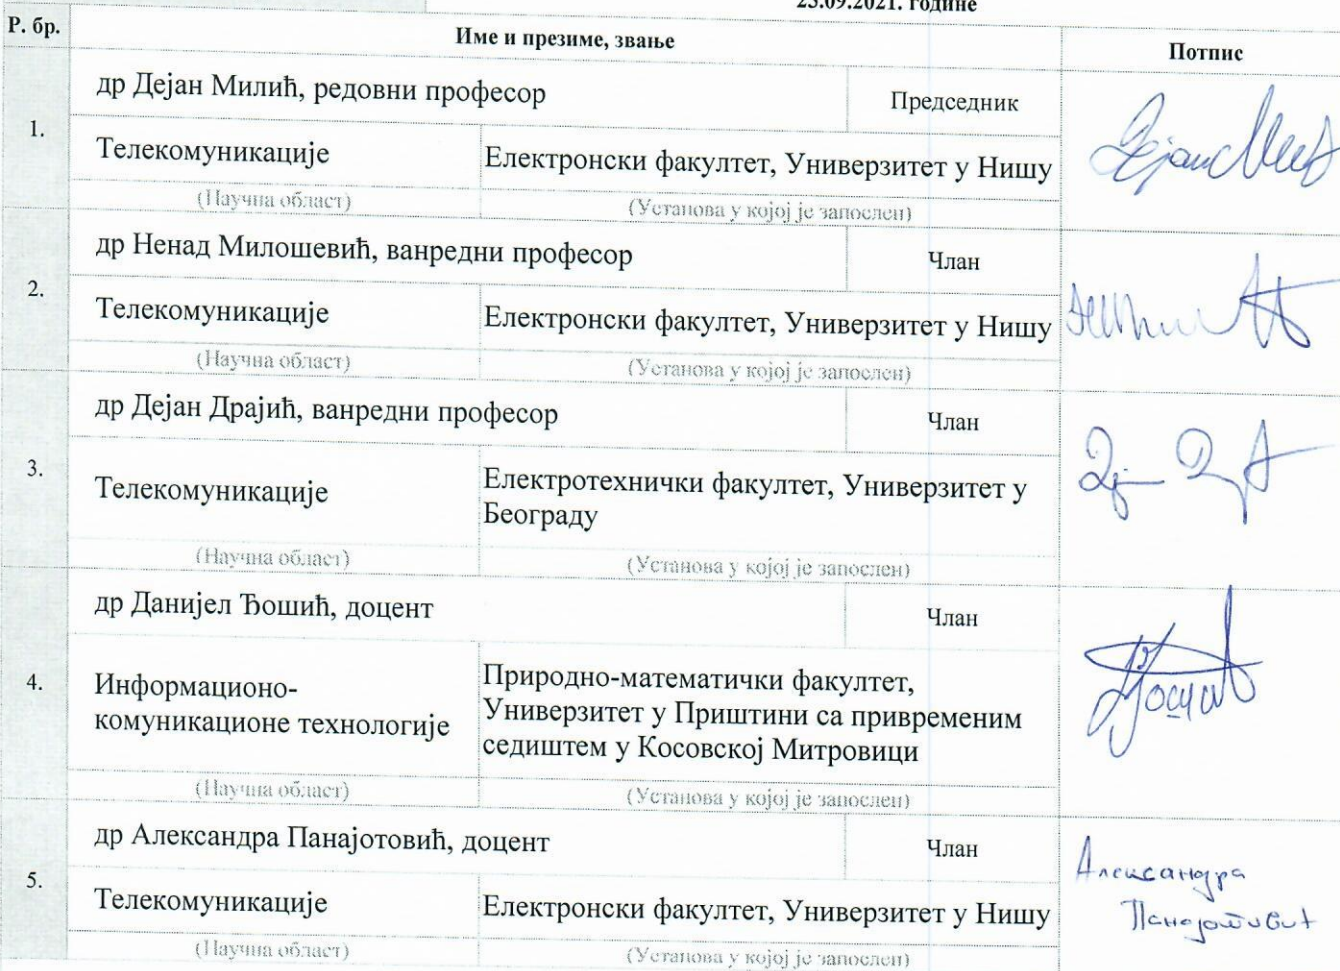 25.09.2021. године
Р. бр.
Име и презиме, звање
Потпис
1.
др Дејан Милић, редовни професор
Председник
Телекомуникације
Електронски факултет, Универзитет у Нишу
(Научна област)
(Установа у којој је запослен)
2.
др Ненад Милошевић, ванредни професор
Члан
Телекомуникације
Електронски факултет, Универзитет у Нишу
(Научна област)
(Установа у којој је запослен)
3.
др Дејан Драјић, ванредни професор
Члан
Телекомуникације
Електротехнички факултет, Универзитет у
Београду
(Научна област)
(Установа у којој је запослен)
4.
др Данијел Ђошић, доцент
Члан
Информационо-
комуникационе технологије
Природно-математички факултет,
Универзитет у Приштини са привременим
седиштем у Косовској Митровици
(Научна област)
(Установа у којој је запослен)
5.
др Александра Панајотовић, доцент
Члан
Александра
Панајотовић
Телекомуникације
Електронски факултет, Универзитет у Нишу
(Научна област)
(Установа у којој је запослен)